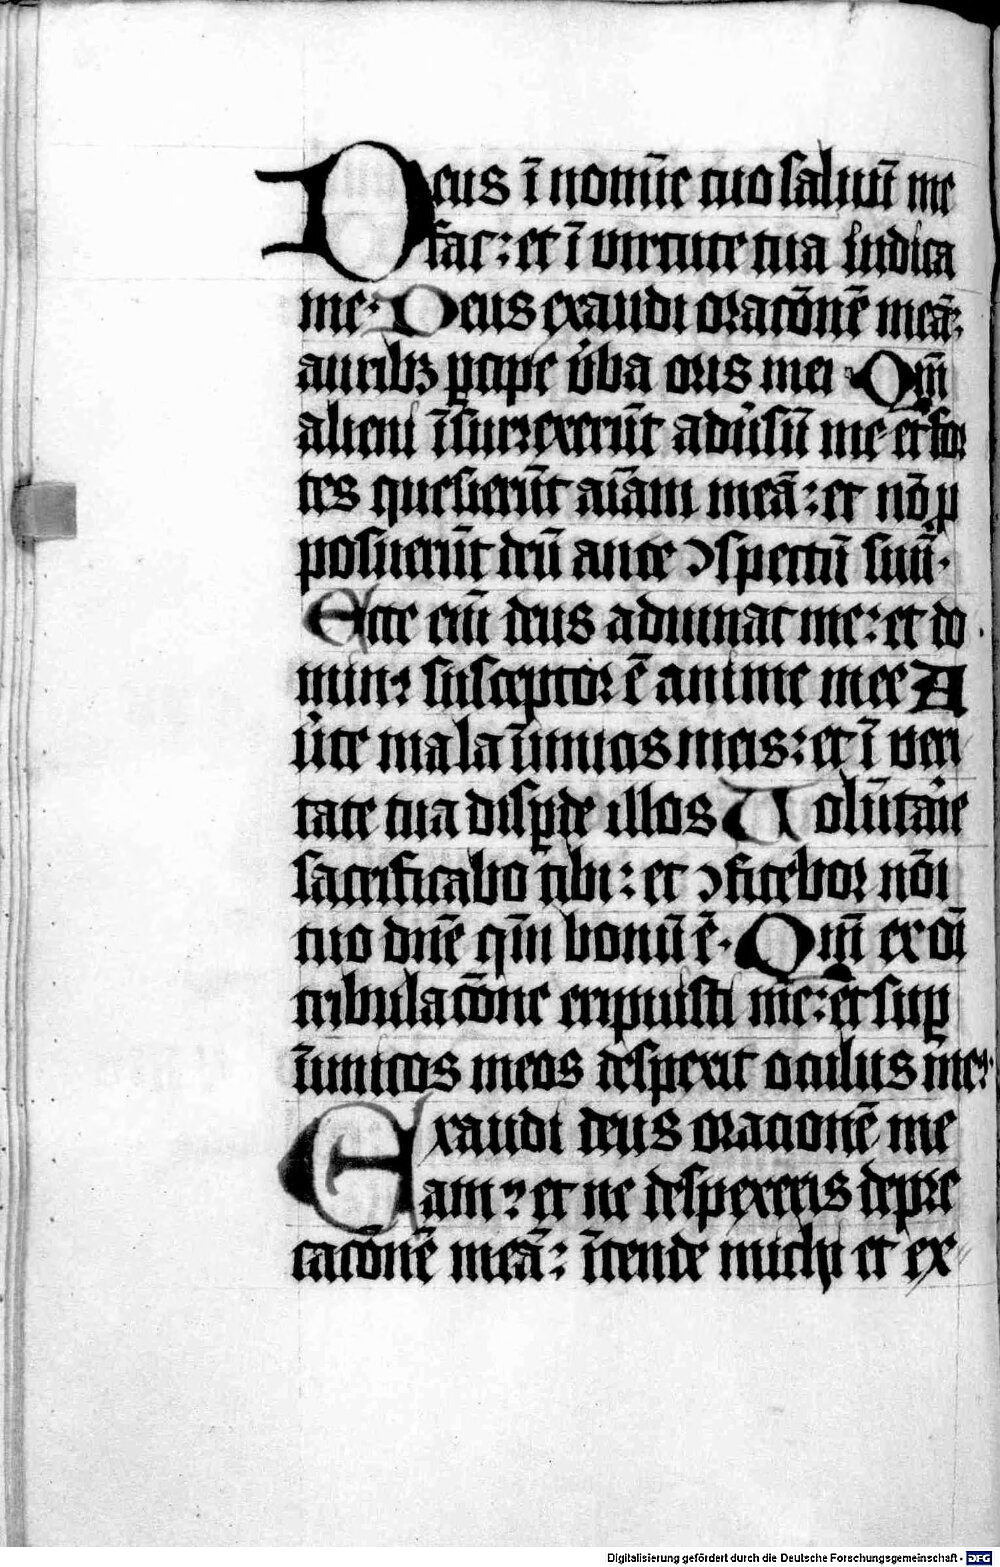 Deus ī nomīe tuo saluū me
fac: et ī virtute tua iudica
me· Deus exaudi oracōnē meā:
auribꝫ ꝑcipe v̓ba oris mei Qm̄
alieni īsurrexerūt adu̓sū me et for
tes quesierūt aīam meā: et nō ꝓ
posuerūt deū ante ↄspectū suū·
Ecce eīn deus adiuuat me: et do
minꝰ susceptor ē anime mee A
u̓te mala īimicis meis: et ī veri
tate tua disꝑde illos Uolūtarie
sacrificabo tibi: et ↄfitebor nōi
tuo dnē qm̄ bonū ē· Qm̄ ex oī
tribulacōne eripuisti me: et suꝑ
īimicos meos despexit oculus meꝰ
Exaudi deus oracionē me
am: et ne despexeris depre
cacōnē meā: ītende michi et ex
Digitalisierung gefördert durch die Deutsche Forschungsgemeinschaft - DFG